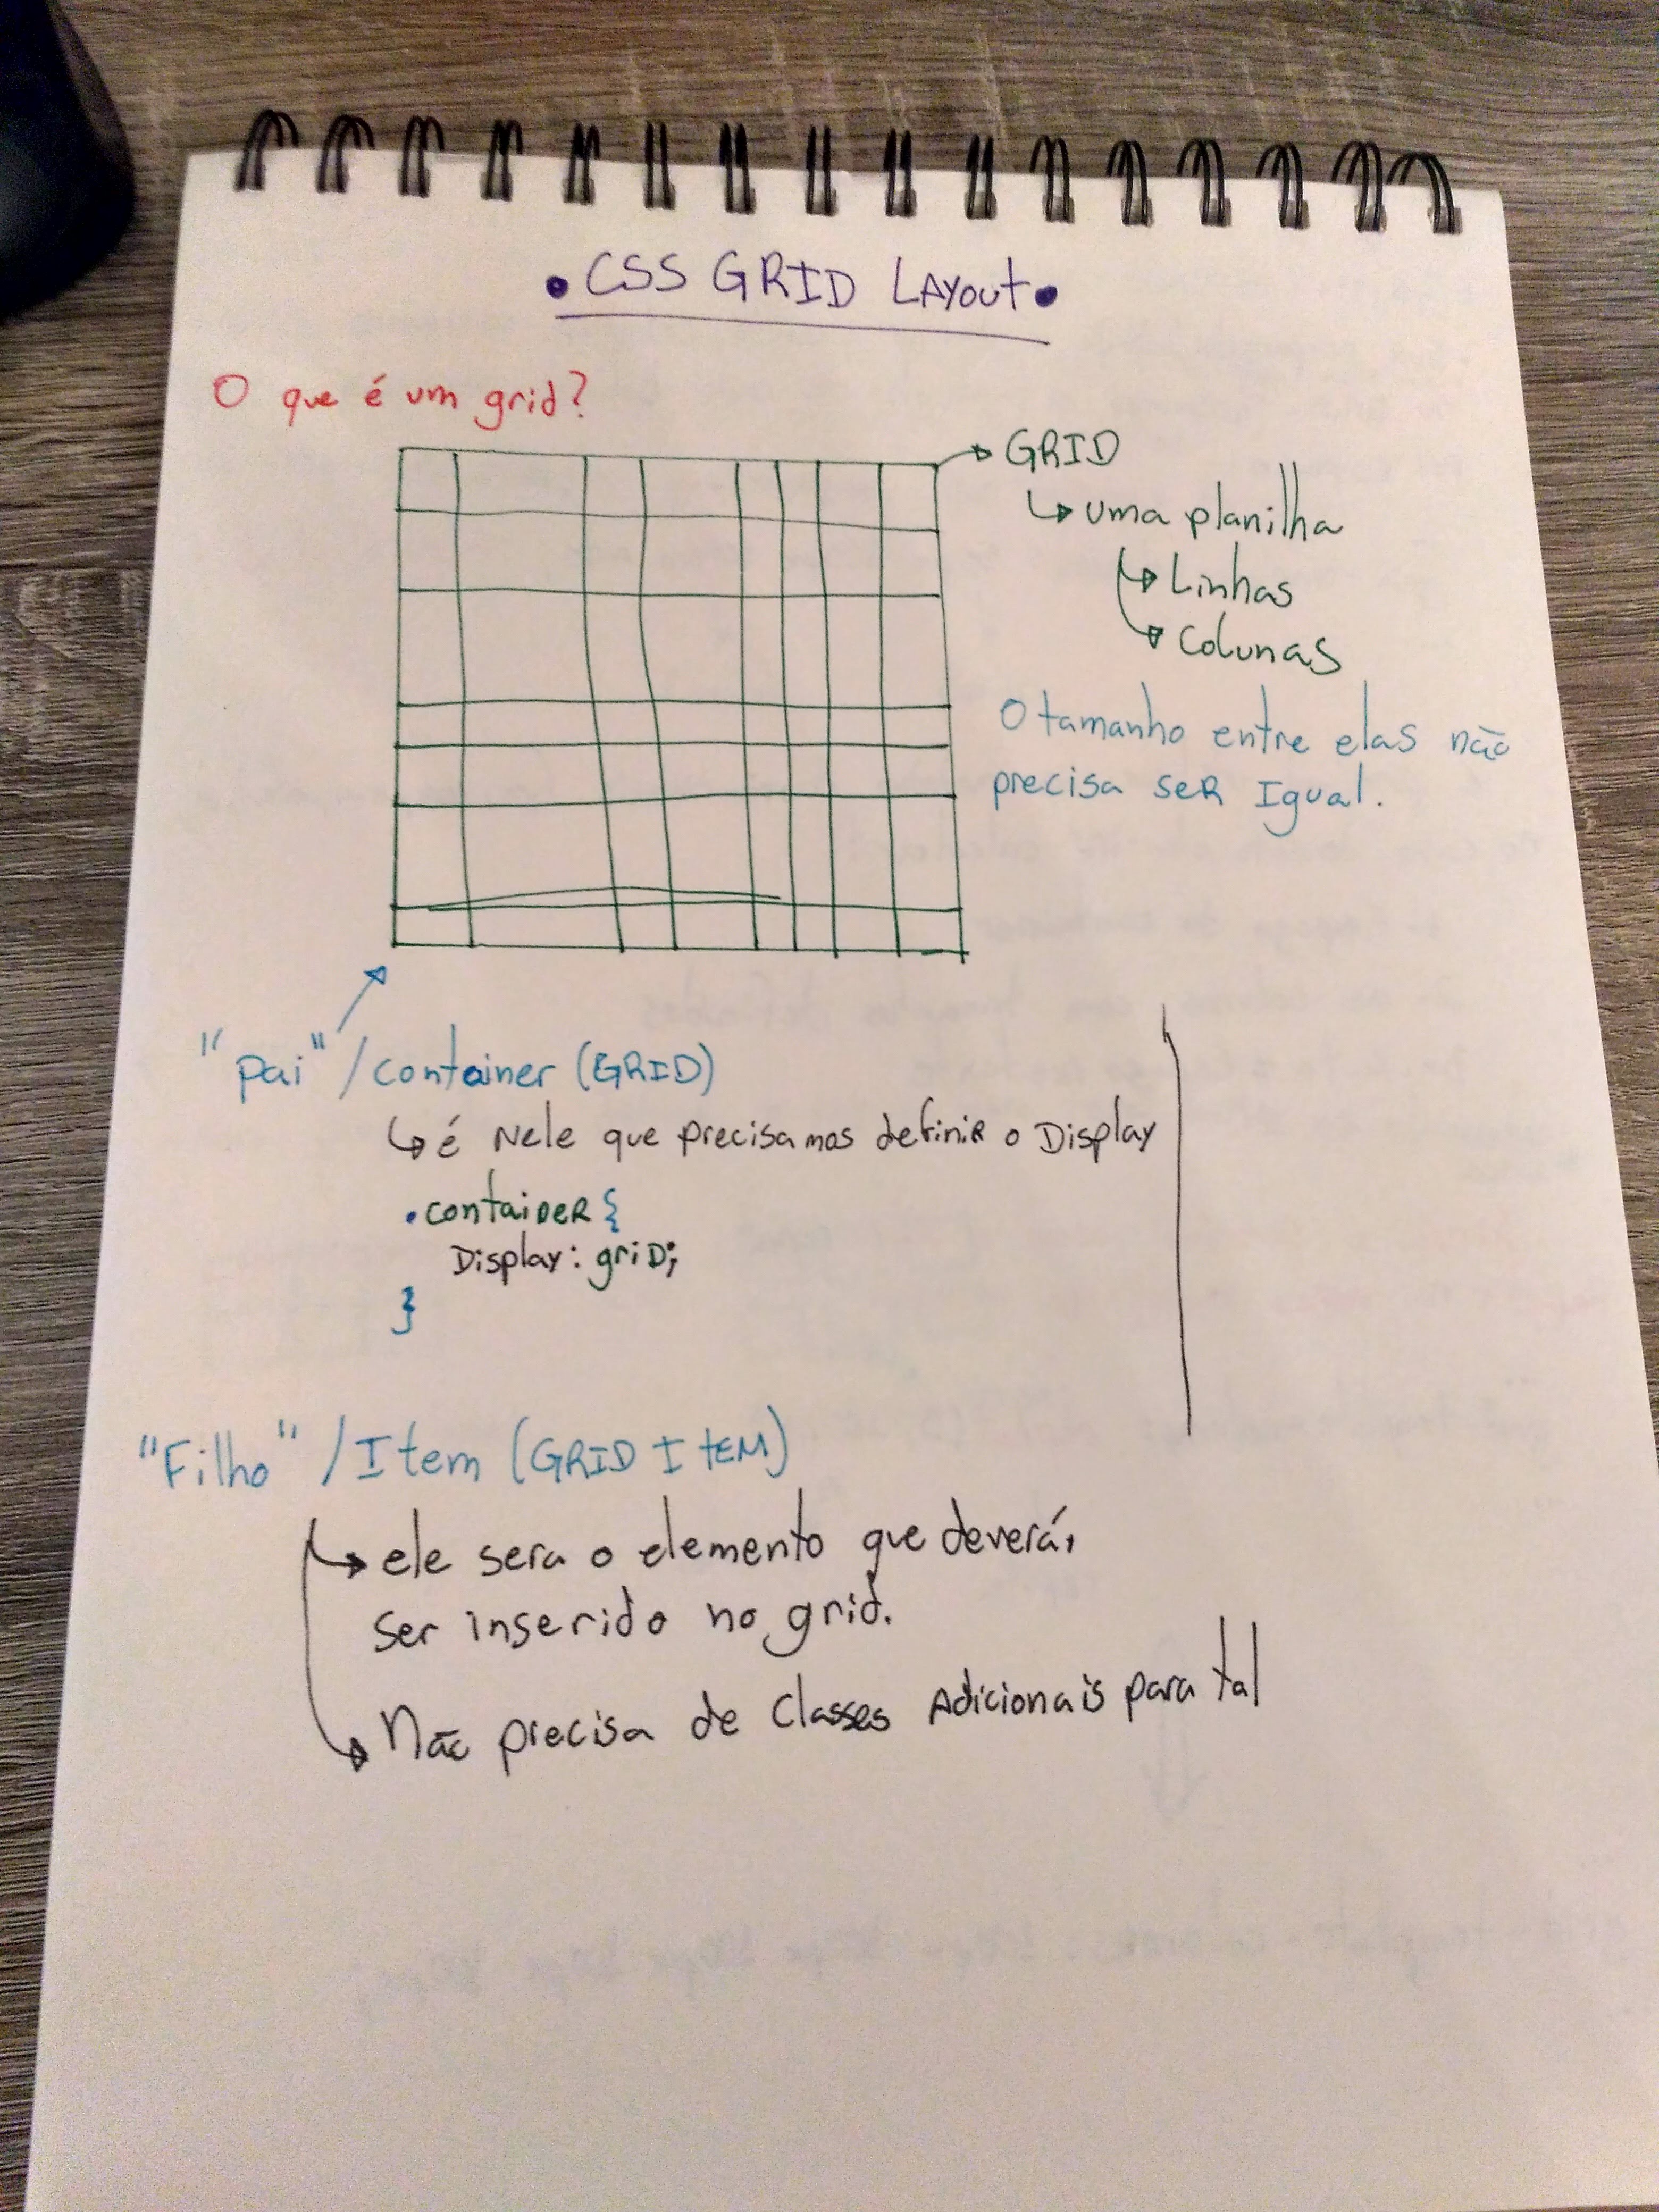 • CSS GRID Layout •
O que é um grid?
GRID
uma planilha
Linhas
Colunas
O tamanho entre elas não
precisa ser Igual.
"Pai" / container (GRID)
é Nele que precisamos definir o Display
.container {
Display: grid;
}
"Filho" / Item (GRID ItEM)
ele sera o elemento que deverá,
ser inserido no grid.
Não precisa de Classes Adicionais para tal